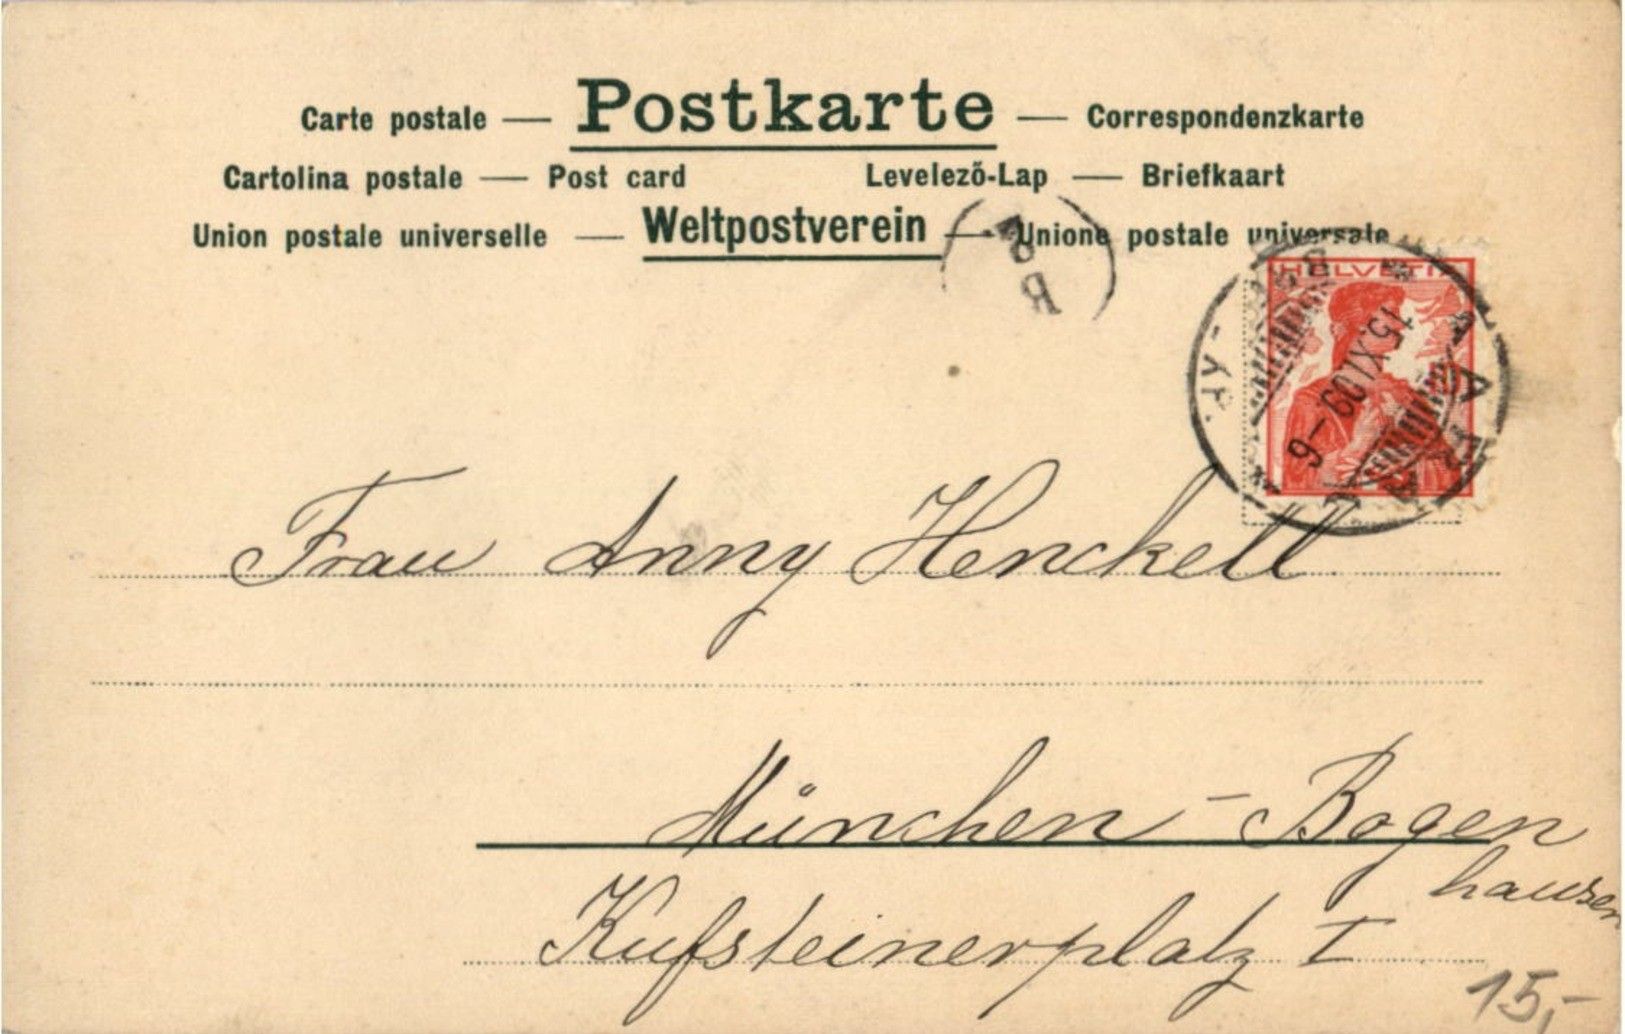 Carte postale — Postkarte — Correspondenzkarte
Cartolina postale — Post card Levelező-Lap — Briefkaart
Union postale universelle — Weltpostverein — Unione postale universale
HELVETIA
15.XI.09-9
Frau Anny Henckell
München-Bogen
hausen
Kufsteinerplatz I
15,-